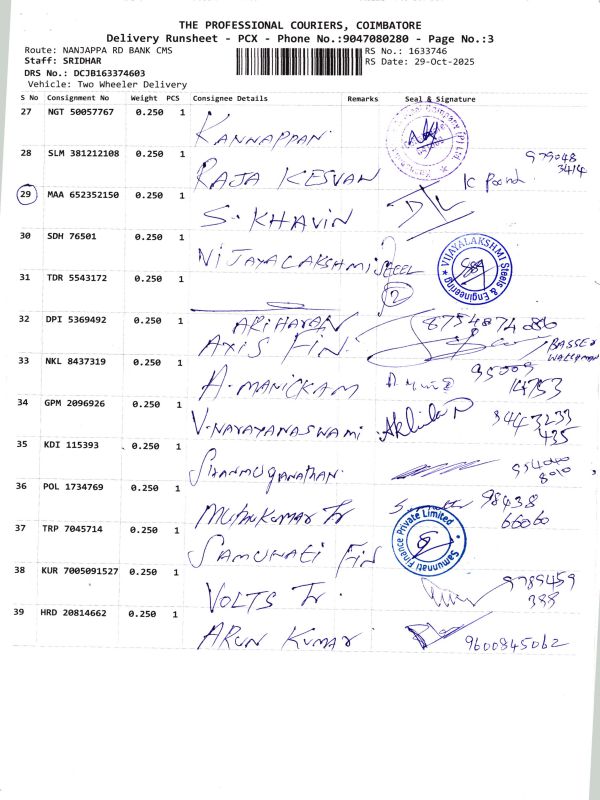 THE PROFESSIONAL COURIERS, COIMBATORE
Delivery Runsheet - PCX - Phone No.:9047080280 - Page No.:3
Route: NANJAPPA RD BANK CMS
RS No.: 1633746
Staff: SRIDHAR
RS Date: 29-Oct-2025
DRS No.: DCJB163374603
Vehicle: Two Wheeler Delivery
S No Consignment No Weight PCS Consignee Details Remarks Seal & Signature
27 NGT 50057767 0.250 1 KANNAPPAN
28 SLM 381212108 0.250 1 RAJA KESVAN 979048 3414
29 MAA 652352150 0.250 1 S. KHAVIN
30 SDH 76501 0.250 1 VIJAYALAKSHMI STEEL
VIJAYALAKSHMI Steels & Engineering
31 TDR 5543172 0.250 1 2
32 DPI 5369492 0.250 1 ARIHARAN
AXIS FIN. 8754874086
33 NKL 8437319 0.250 1 A. MANICKAM 95009 14753
34 GPM 2096926 0.250 1 V. NARAYANASWAMI
35 KDI 115393 0.250 1 SHANMUGANATHAN
36 POL 1734769 0.250 1 MUTHUKUMAR Tr 98438 66060
37 TRP 7045714 0.250 1 SAMUNATI FIN
Samunnati Finance Private Limited
38 KUR 7005091527 0.250 1 VOLTS Tr. 9789459 388
39 HRD 20814662 0.250 1 ARUN KUMAR 9600845062